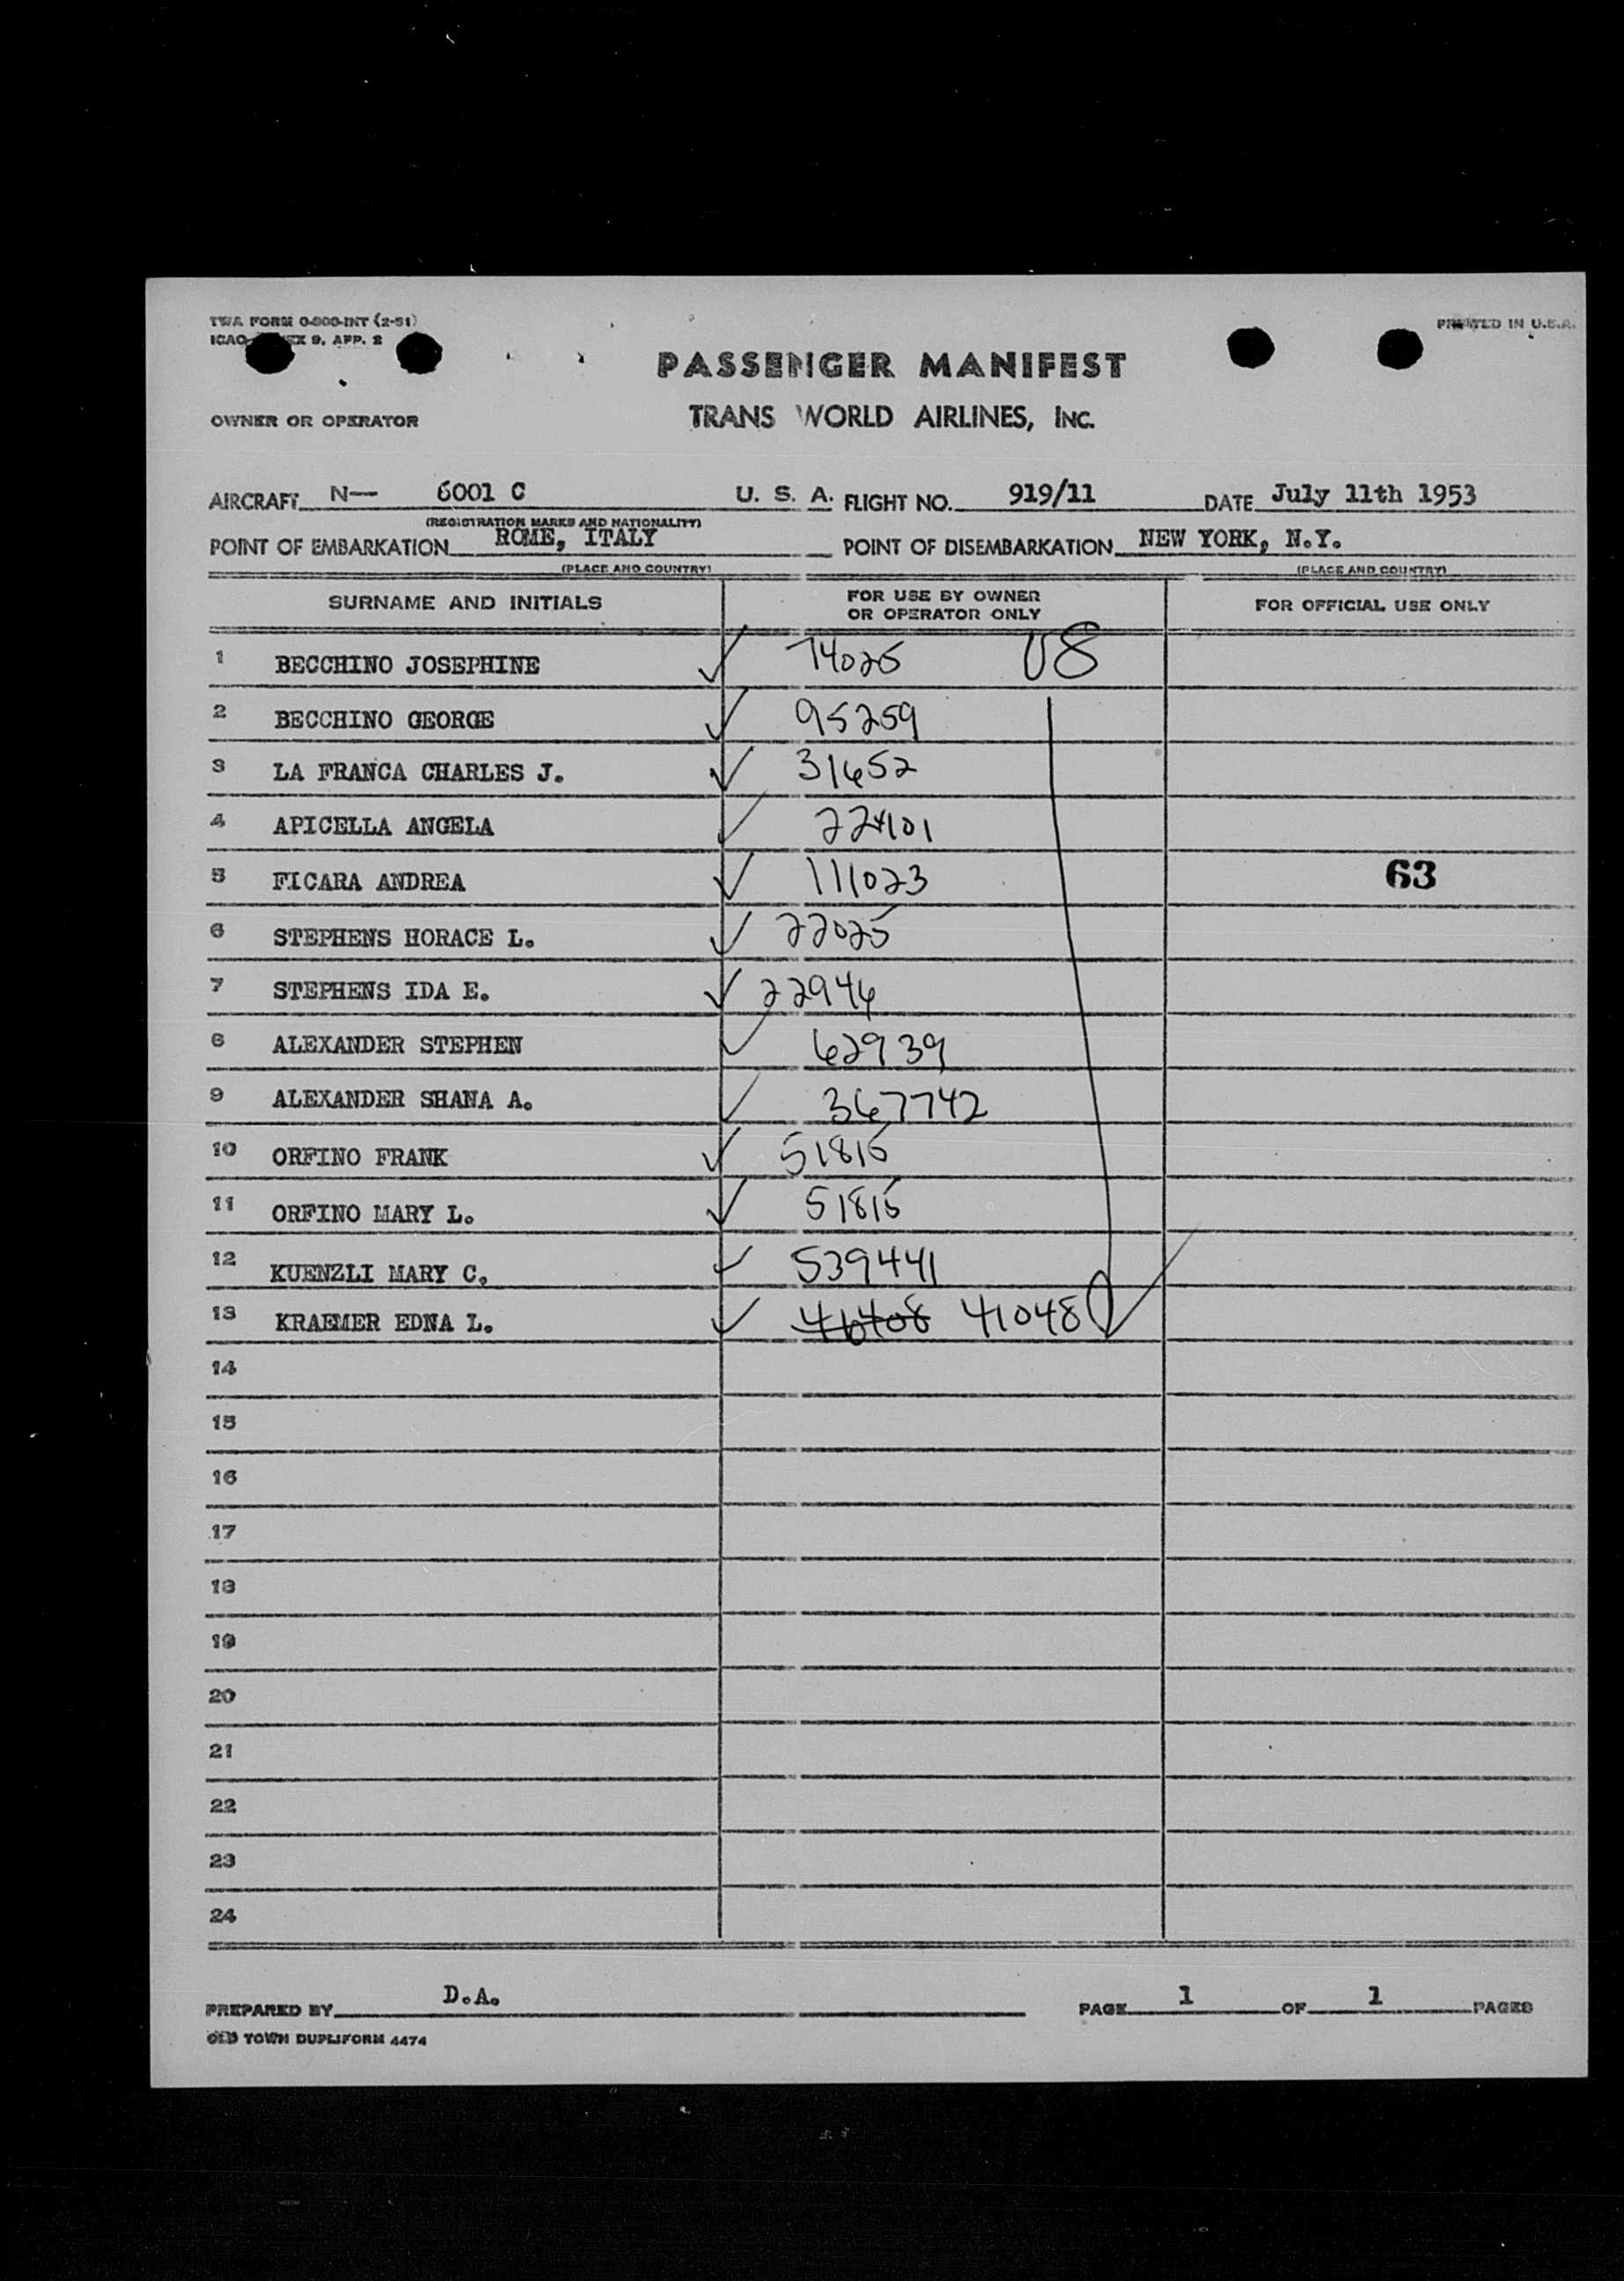 TWA FORM 0-800-INT (2-51)
PRINTED IN U.S.A.
ICAO EX 9, APP. 2
PASSENGER MANIFEST
OWNER OR OPERATOR TRANS WORLD AIRLINES, INC.
AIRCRAFT N— 6001 C U. S. A. FLIGHT NO. 919/11 DATE July 11th 1953
(REGISTRATION MARKS AND NATIONALITY)
POINT OF EMBARKATION ROME, ITALY POINT OF DISEMBARKATION NEW YORK, N.Y.
(PLACE AND COUNTRY) (PLACE AND COUNTRY)
SURNAME AND INITIALS FOR USE BY OWNER OR OPERATOR ONLY FOR OFFICIAL USE ONLY
1 BECCHINO JOSEPHINE ✓ 74025 US
2 BECCHINO GEORGE ✓ 95259
3 LA FRANCA CHARLES J. ✓ 31652
4 APICELLA ANGELA ✓
5 FICARA ANDREA ✓ 111023 63
6 STEPHENS HORACE L. ✓ 22025
7 STEPHENS IDA E. ✓ 22946
8 ALEXANDER STEPHEN ✓ 62939
9 ALEXANDER SHANA A. ✓ 367742
10 ORFINO FRANK ✓ 51815
11 ORFINO MARY L. ✓ 51815
12 KUENZLI MARY C. ✓ 539441
13 KRAEMER EDNA L. ✓ 41048 ✓
14
15
16
17
18
19
20
21
22
23
24
PREPARED BY D.A. PAGE 1 OF 1 PAGES
OLD TOWN DUPLIFORM 4474